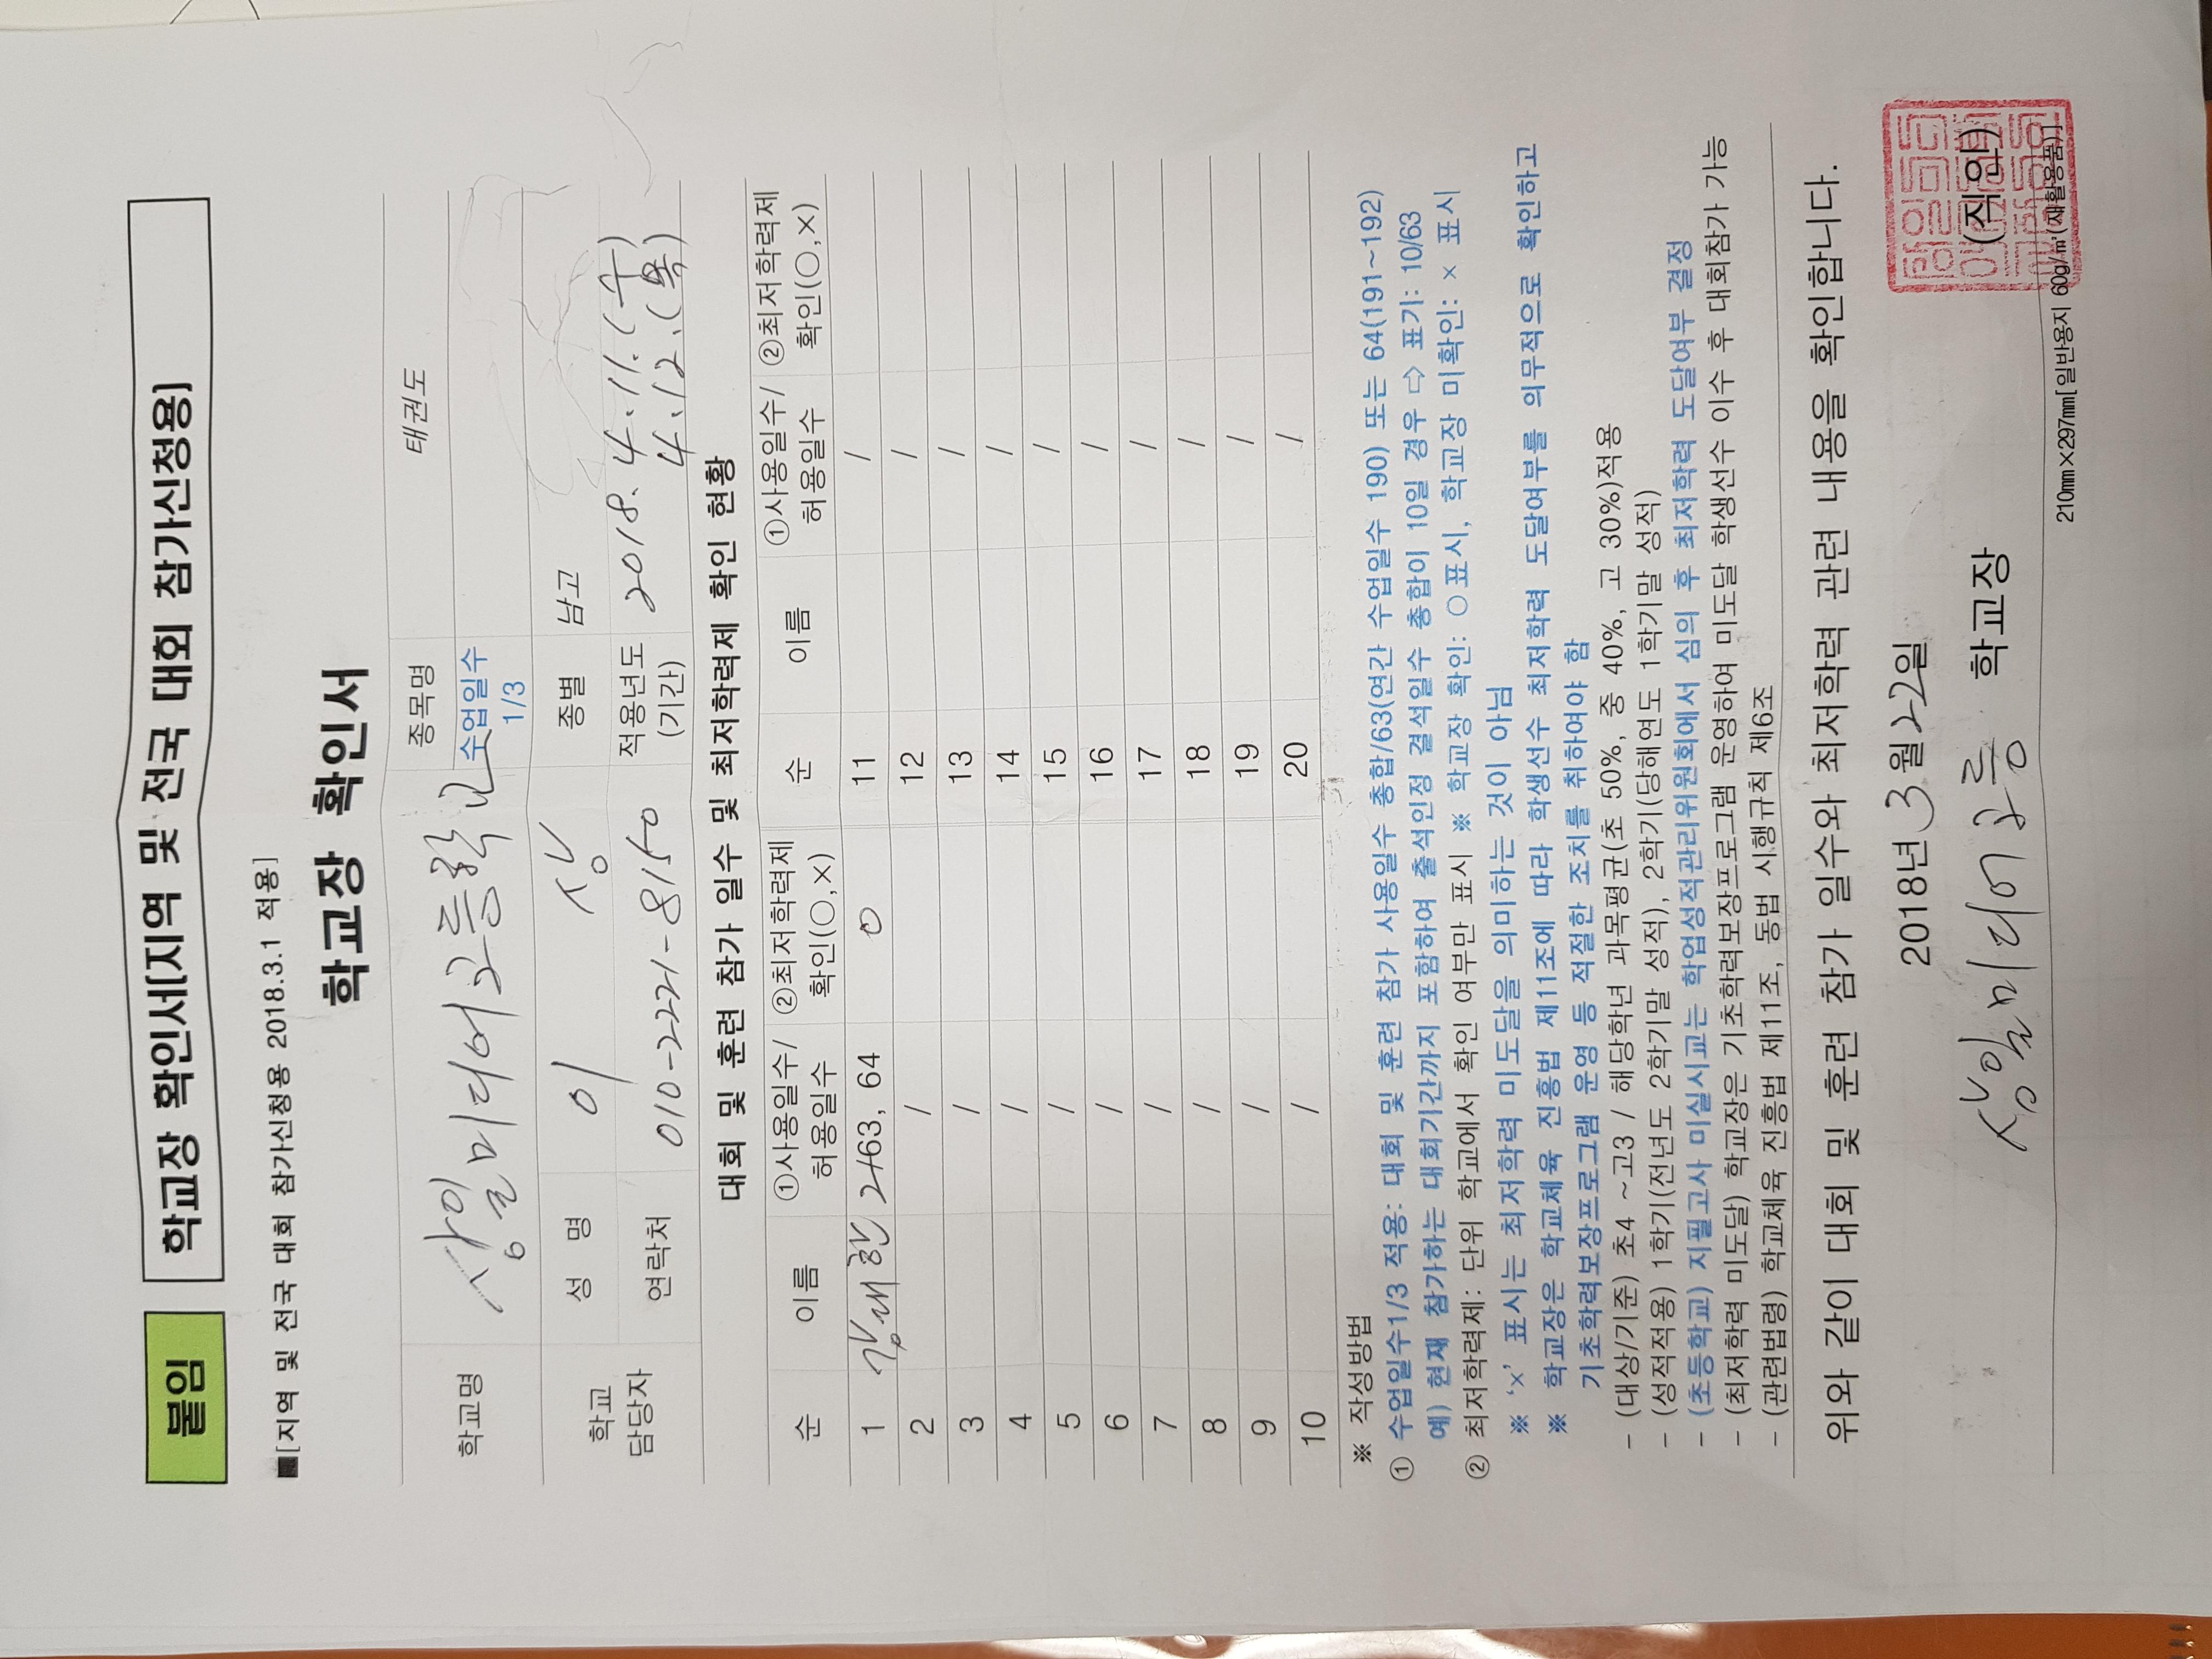 붙임 학교장 확인서[지역 및 전국 대회 참가신청용]
■[지역 및 전국 대회 참가신청용 2018.3.1 적용]
학교장 확인서
학교명 상일미디어고등학교 종목명 태권도
수업일수 1/3
학교 담당자 성 명 이 상 종별 남고
연락처 010-2221-8150 적용년도 (기간) 2018. 4.11.(수)
4.12.(목)
대회 및 훈련 참가 일수 및 최저학력제 확인 현황
순 이름 ①사용일수/허용일수 ②최저학력제 확인(○,×) 순 이름 ①사용일수/허용일수 ②최저학력제 확인(○,×)
1 강배한 2/63, 64 0 11 /
2 / 12 /
3 / 13 /
4 / 14 /
5 / 15 /
6 / 16 /
7 / 17 /
8 / 18 /
9 / 19 /
10 / 20 /
※ 작성방법
① 수업일수1/3 적용: 대회 및 훈련 참가 사용일수 총합/63(연간 수업일수 190) 또는 64(191~192)
예) 현재 참가하는 대회기간까지 포함하여 출석인정 결석일수 총합이 10일 경우 ⇨ 표기: 10/63
② 최저학력제: 단위 학교에서 확인 여부만 표시 ※ 학교장 확인: ○표시, 학교장 미확인: × 표시
※ '×' 표시는 최저학력 미도달을 의미하는 것이 아님
※ 학교장은 학교체육 진흥법 제11조에 따라 학생선수 최저학력 도달여부를 의무적으로 확인하고
기초학력보장프로그램 운영 등 적절한 조치를 취하여야 함
- (대상/기준) 초4 ~고3 / 해당학년 과목평균(초 50%, 중 40%, 고 30%)적용
- (성적적용) 1학기(전년도 2학기말 성적), 2학기(당해연도 1학기말 성적)
- (초등학교) 지필고사 미실시교는 학업성적관리위원회에서 심의 후 최저학력 도달여부 결정
- (최저학력 미도달) 학교장은 기초학력보장프로그램 운영하여 미도달 학생선수 이수 후 대회참가 가능
- (관련법령) 학교체육 진흥법 제11조, 동법 시행규칙 제6조
위와 같이 대회 및 훈련 참가 일수와 최저학력 관련 내용을 확인합니다.
2018년 3월 22일
상일미디어고등 학교장 (직인)
210㎜×297㎜[일반용지 60g/㎡(재활용품)]